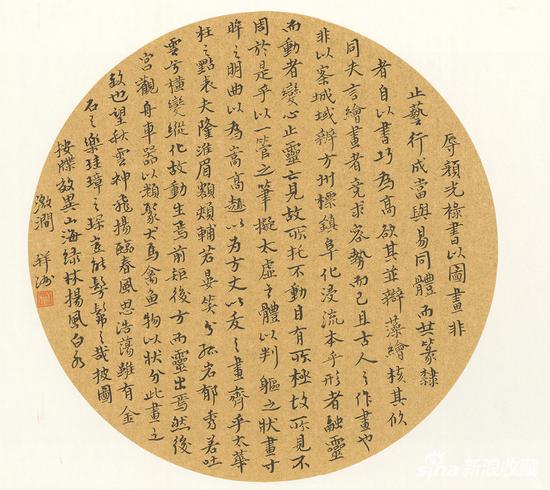 辱顏光祿書以圖畫非
止藝行成當與易同體而共篆隸
者自以書巧為高欲其並辯藻繪核其攸
同夫言繪畫者竟求容勢而已且古人之作畫也
非以案城域辨方州標鎮阜化浸流本乎形者融靈
而動者變心止靈亡見故所托不動目有所極故所見不
周於是乎以一管之筆擬太虛之體以判軀之狀畫寸
眸之明曲以為嵩高趣以為方丈以叐之畫齊乎太華
枉之點表夫隆准眉額頰輔若晏笑兮孤岩郁秀若吐
雲兮橫變縱化故動生焉前矩後方而靈出焉然後
宮觀舟車器以類聚犬馬禽魚物以狀分此畫之
致也望秋雲神飛揚臨春風思浩蕩雖有金
石之樂珪璋之琛豈能髣髴之哉披圖
按牒效異山海綠林揚風白水
激澗
sina 新浪收藏